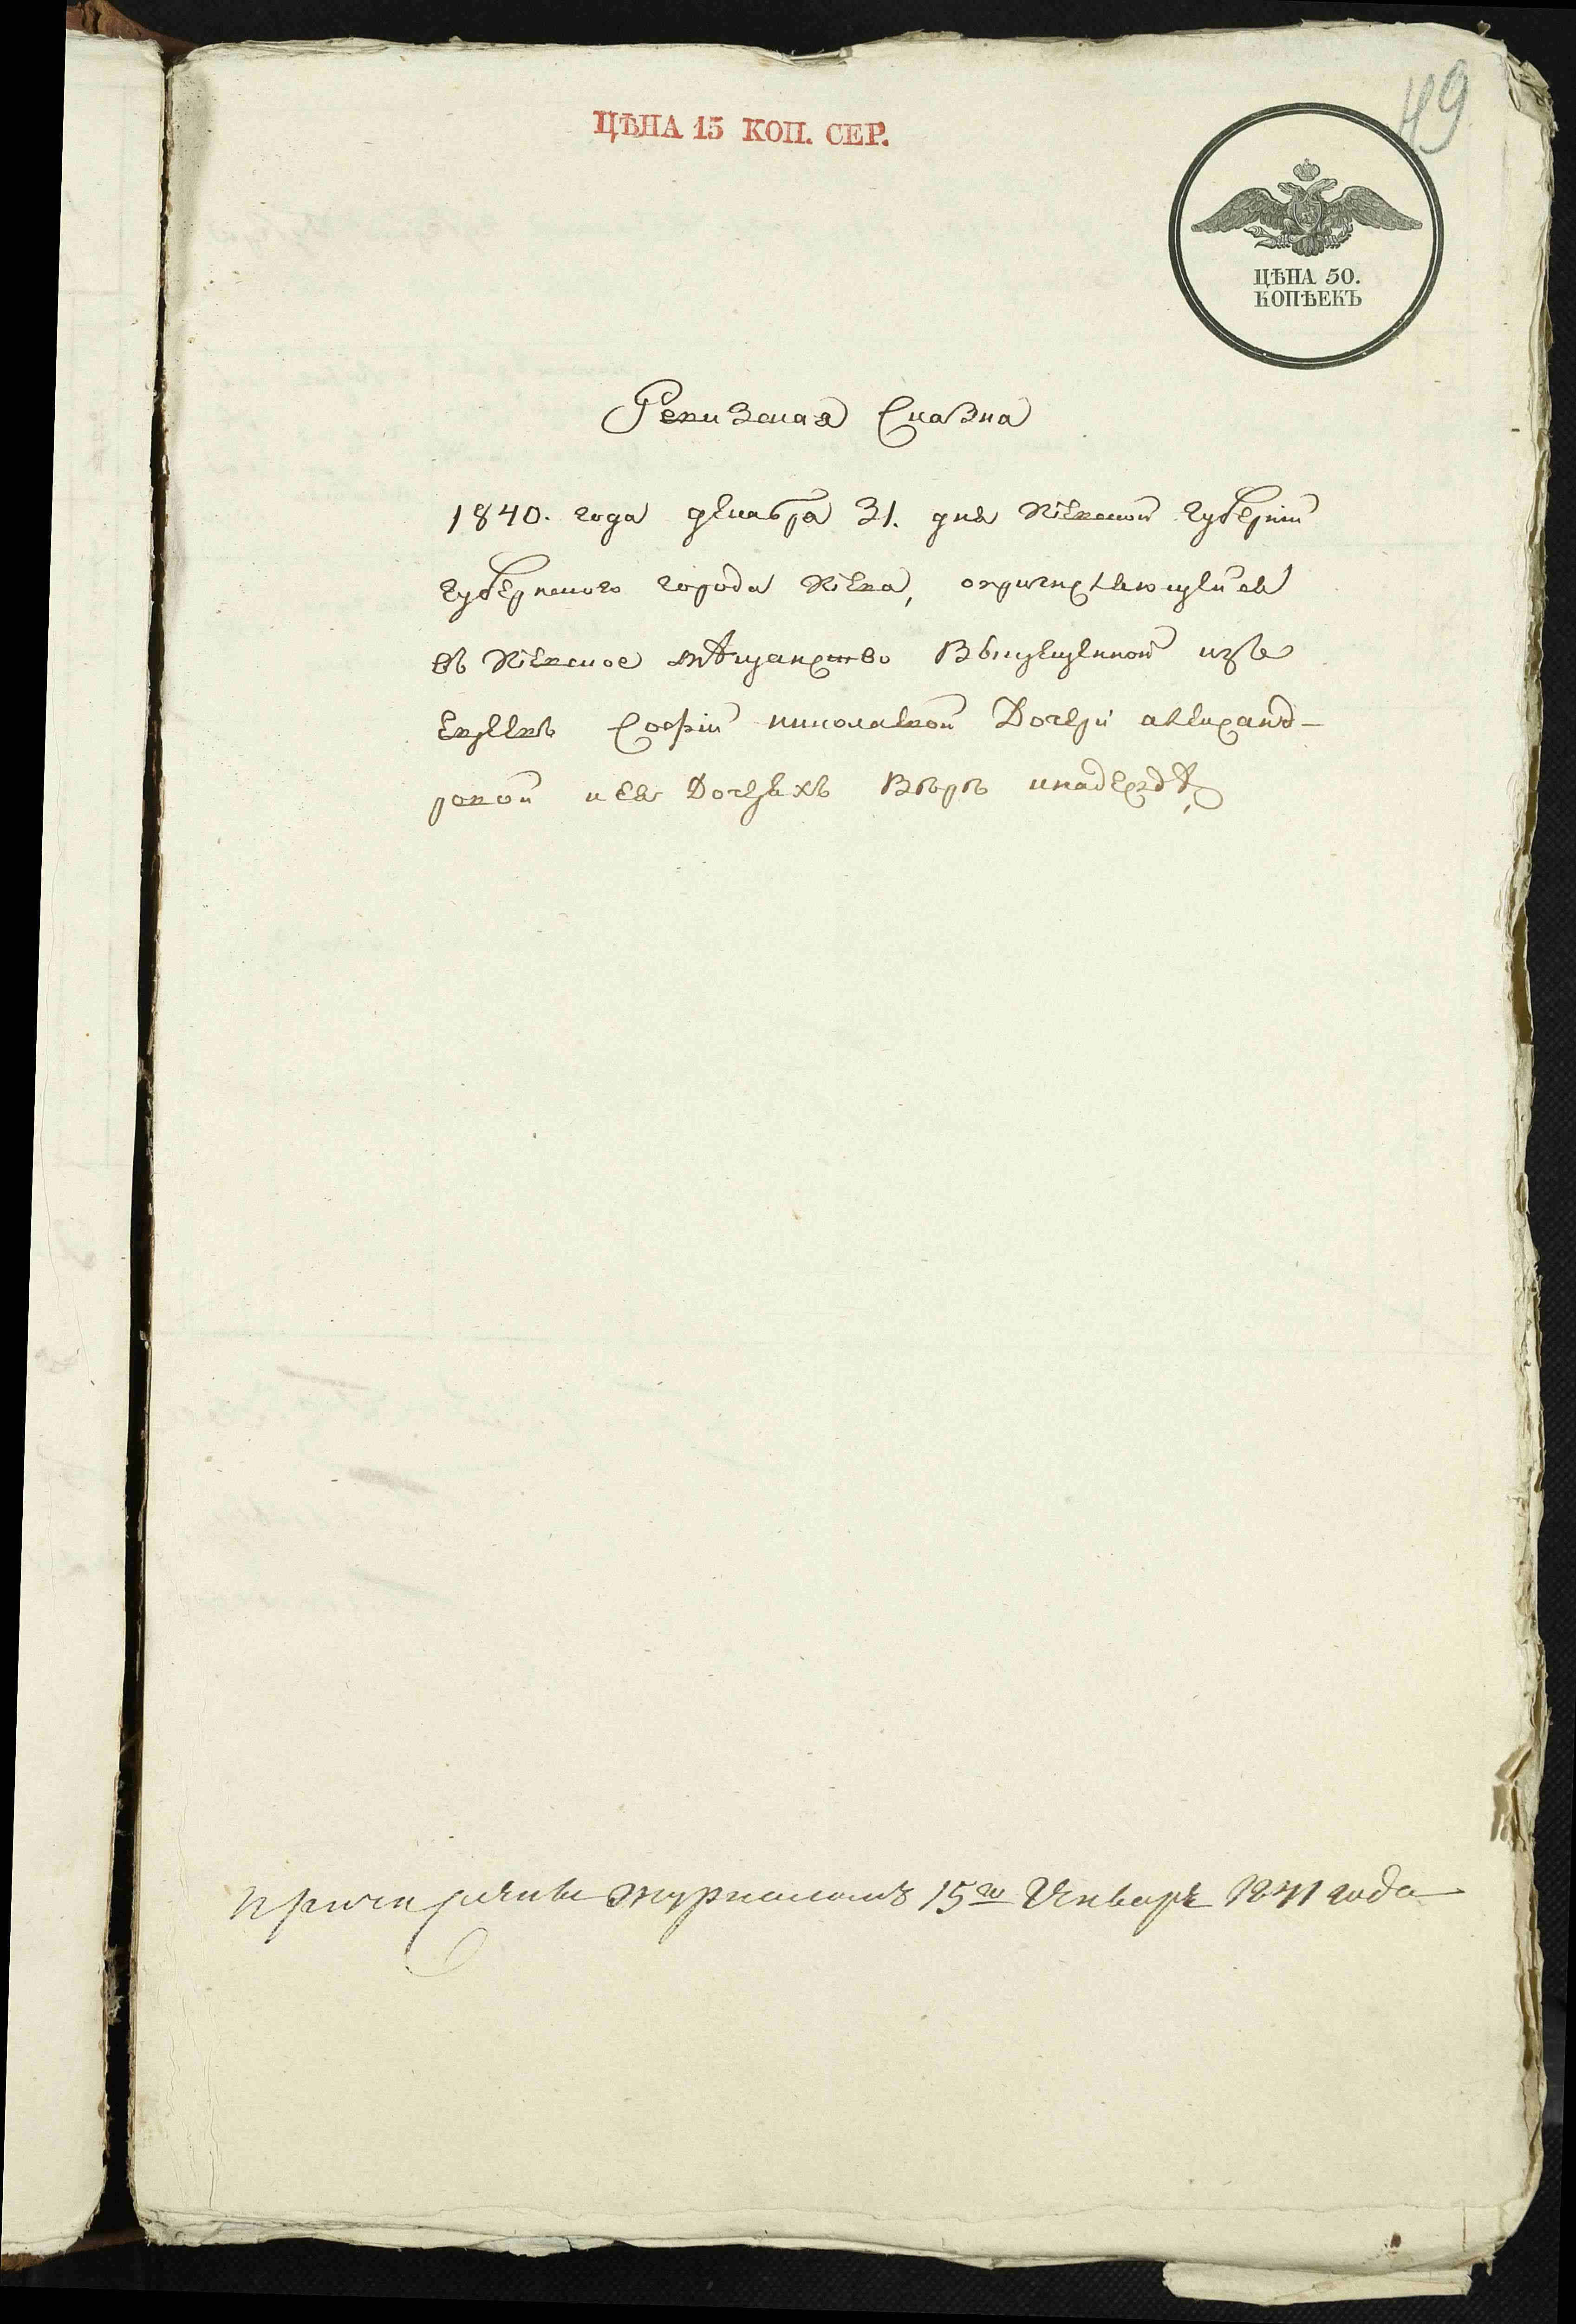 49
ЦѢНА 15 КОП. СЕР.
ЦѢНА 50.
КОПѢЕКЪ
Ревизская Сказка
1840. года декабря 31. дня Кіевской Губерніи
Губернского города Кіева, опричисляющейся
въ Кіевское мѣщанство Выкрещенной изъ
Евреевъ Софіи николаевой Дочери александ-
ровой и ея Дочеряхъ Вѣрѣ инадеждѣ
Причислены Журналомъ 15го Января 1841 года